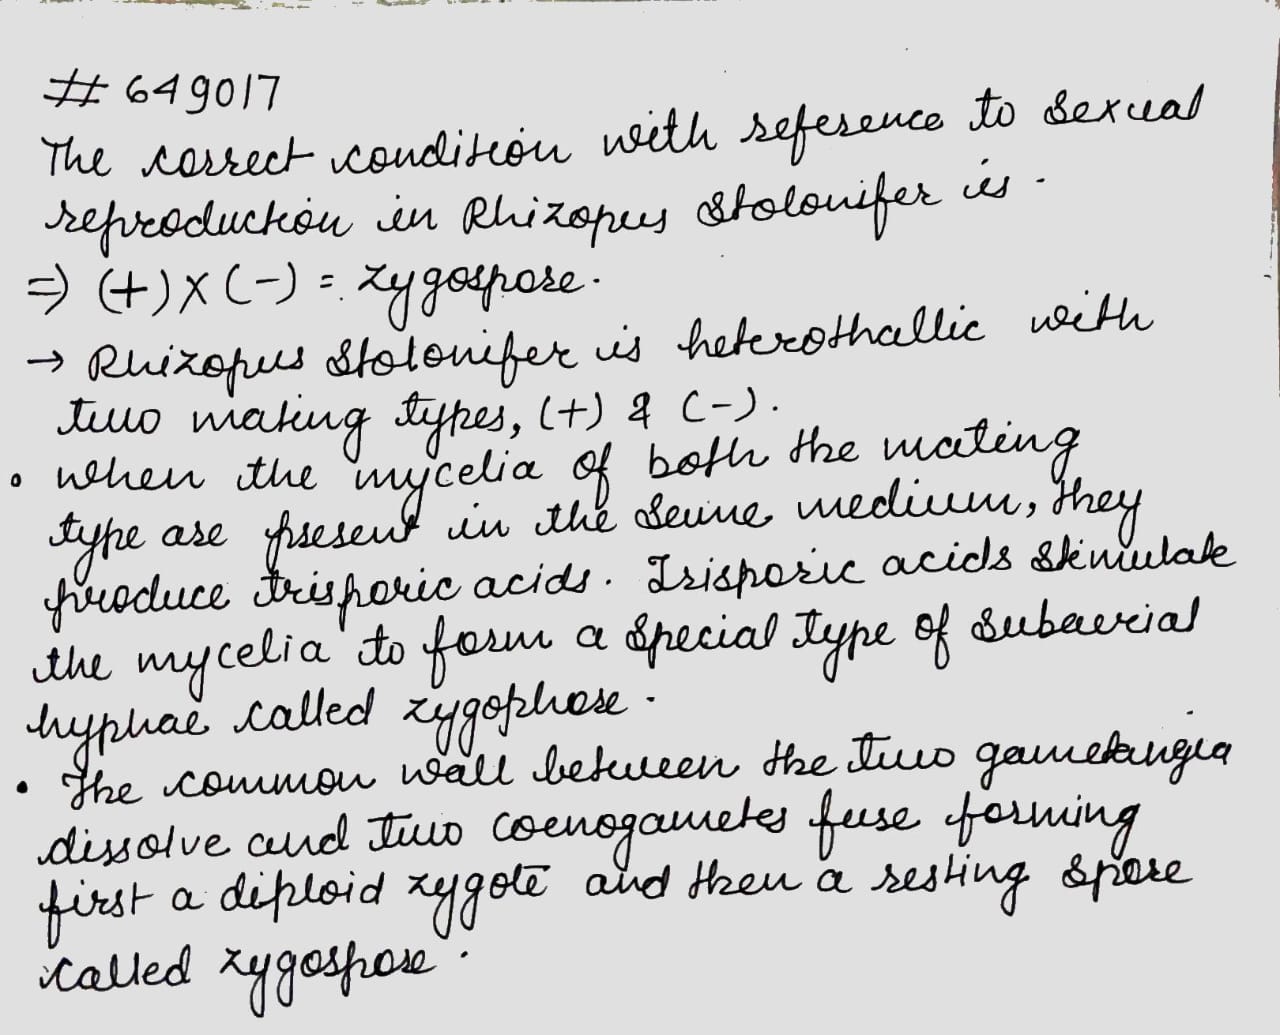 # 649017
The correct condition with reference to sexual
reproduction in Rhizopus Stolonifer is.
⇒ (+) x (-) = zygospore.
→ Rhizopus Stolonifer is heterothallic with
two mating types, (+) & (-).
• when the mycelia of both the mating
type are present in the same medium, they
produce trisporic acids. Trisporic acids stimulate
the mycelia to form a special type of subaerial
hyphae called zygophore.
• The common wall between the two gametangia
dissolve and two coenogametes fuse forming
first a diploid zygote and then a resting spore
called zygospore.